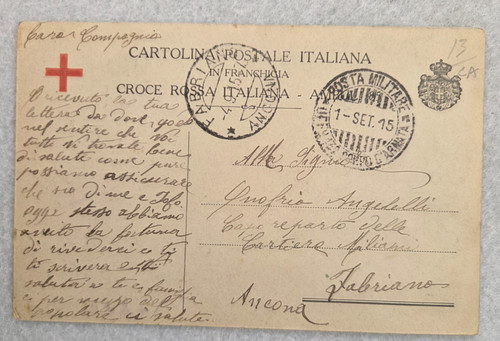 Caro Compagnio
13
CARTOLINA POSTALE ITALIANA
IN FRANCHIGIA
CROCE ROSSA ITALIANA -
FABRIANO
ANCONA
POSTA MILITARE
1-SET.15
CORPO D'ARMATA
O ricevuto la tua
lettera da dove godo
nel sentire che
tutti vi trovate bene
di salute come pure
possiamo assicurare
che io di me e
oggi stesso abbiamo
avuto la fortuna
di rivedersi e
to scriverà
saluta a te e
e per mezzo del
saluta
Alla
Onofrio Angelelli
Capo reparto delle
Cartiere Miliani
Fabriano
Ancona